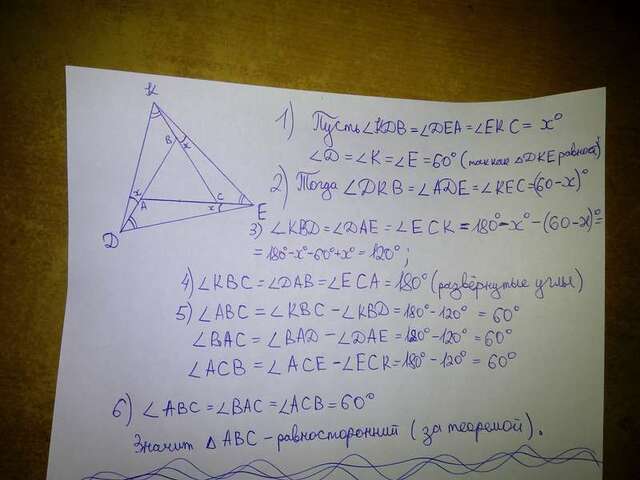 K
B
x
x
A
C
x
E
D
1) Пусть ∠KDB = ∠DEA = ∠EKC = x°
∠D = ∠K = ∠E = 60° (так как △DKE равност
2) Тогда ∠DKB = ∠ADE = ∠KEC = (60-x)°
3) ∠KBD = ∠DAE = ∠ECK = 180° - x° - (60-x)° =
= 180° - x° - 60° + x° = 120° ;
4) ∠KBC = ∠DAB = ∠ECA = 180° (развёрнутые углы)
5) ∠ABC = ∠KBC - ∠KBD = 180° - 120° = 60°
∠BAC = ∠BAD - ∠DAE = 180° - 120° = 60°
∠ACB = ∠ACE - ∠ECK = 180° - 120° = 60°
6) ∠ABC = ∠BAC = ∠ACB = 60°
Значит △ABC - равносторонний (за теоремой).